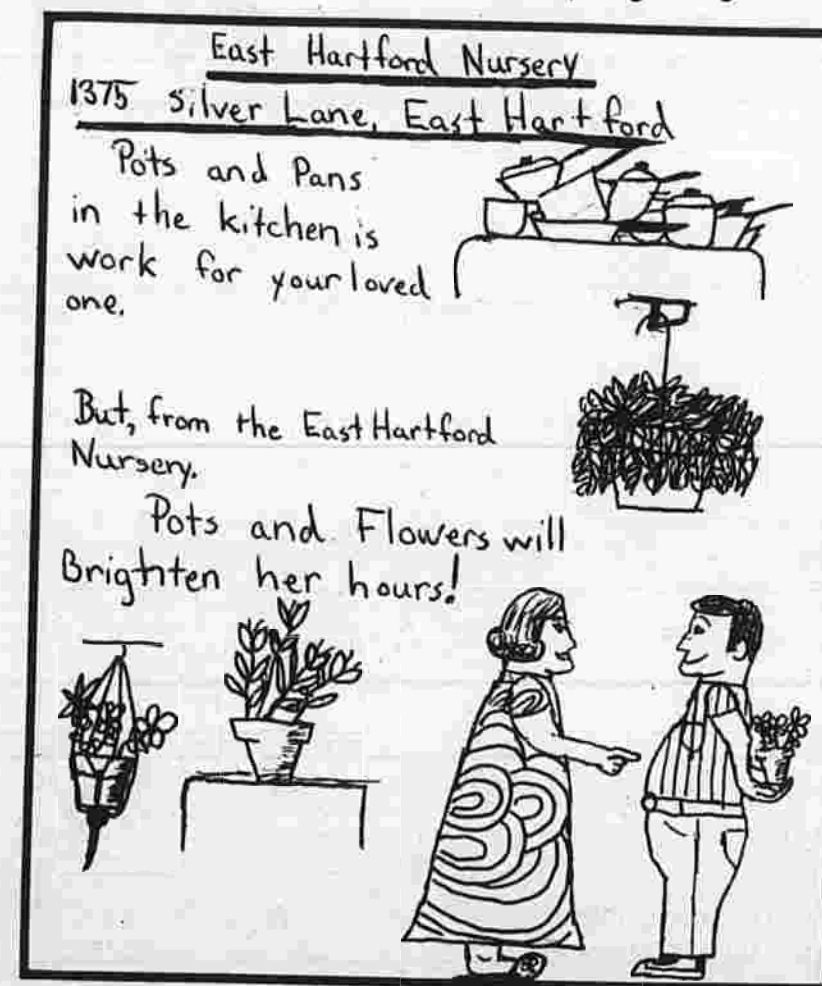 East Hartford Nursery
1375 Silver Lane, East Hartford
Pots and Pans
in the kitchen is
work for your loved
one.
But, from the East Hartford
Nursery.
Pots and Flowers will
Brighten her hours!